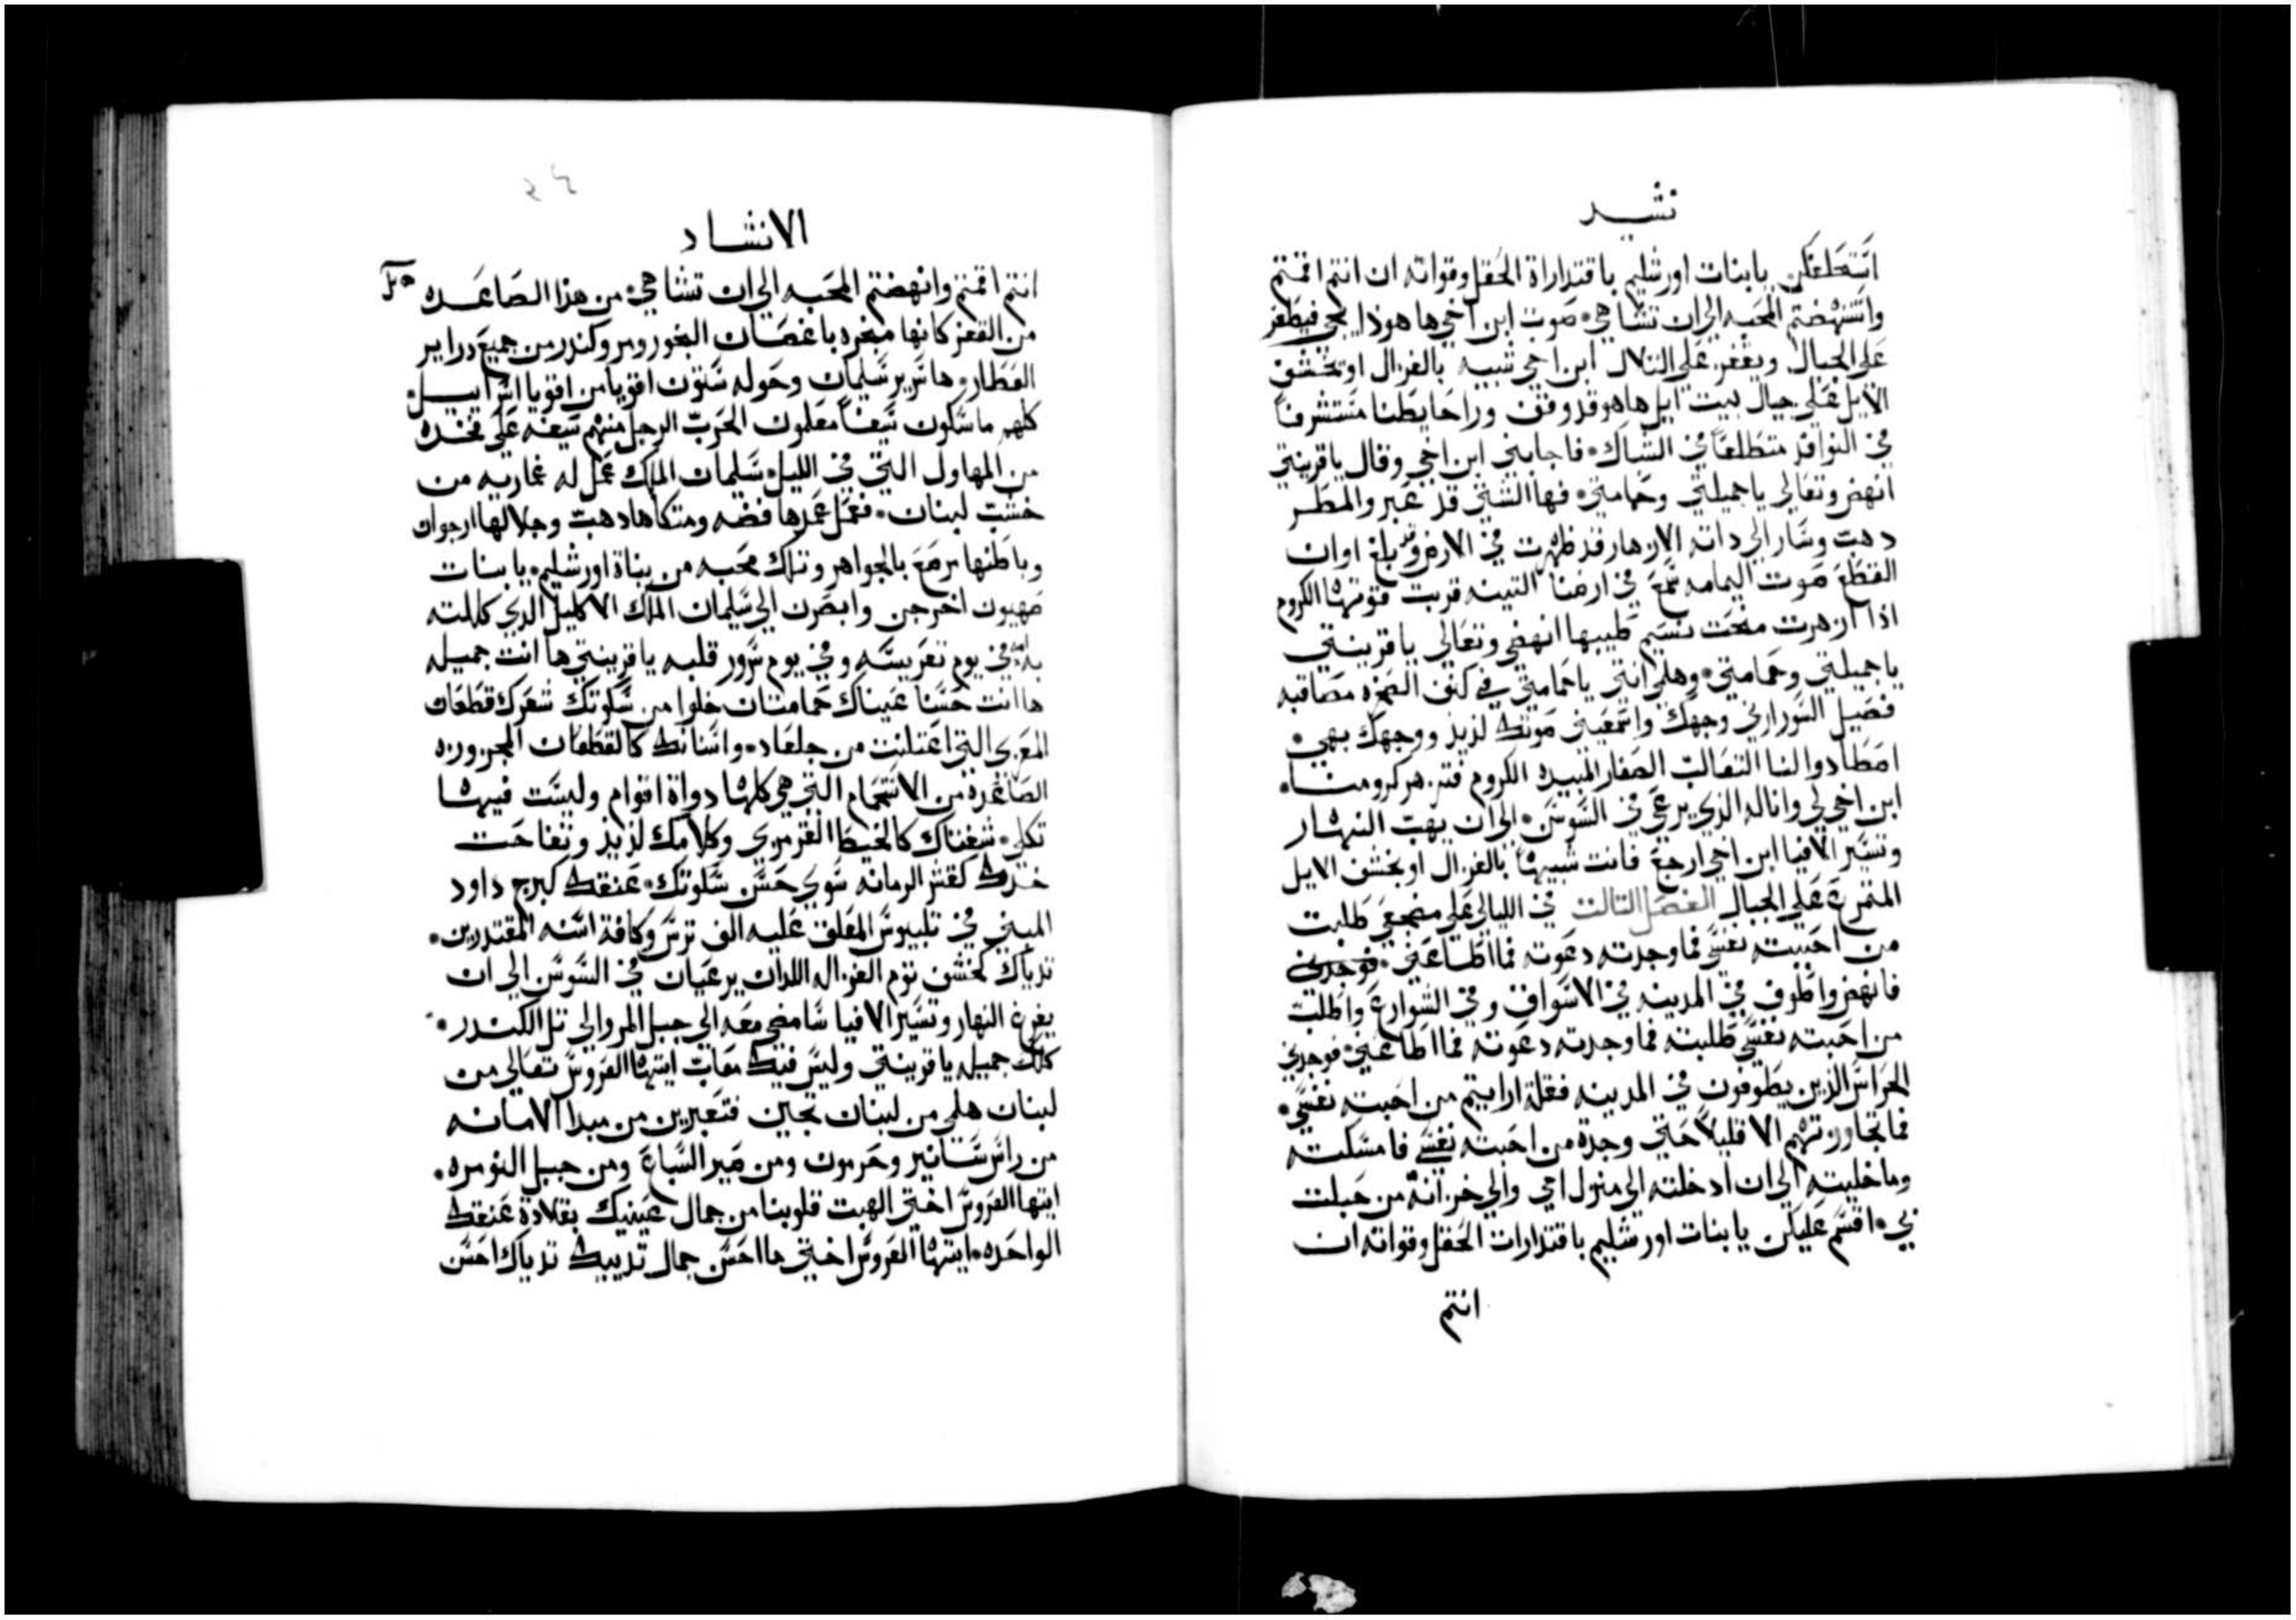 نشيد
استحلفكن يا بنات اورشليم باقتداراة الحقل وقواته ان انتم اقمتم
واستنهضتم المحبه الى ان تشا هي صوت ابن اخي ها هوذا يجي فيطفر
على الجبال ويقفز على التلال ابن اخي شبيه بالغزال او بخشف
الايل على جبال بيت ايل ها هو قد وقف ورا حايطنا مستشرفا
في النوافذ متطلعا في الشباك فاجابني ابن اخي وقال يا قرينتي
انهضي وتعالي يا جميلتي وحمامتي فها الشتي قد عبر والمطر
دهب وسار الى داته الازهار قد ظهرت في الارض وقد بلغ اوان
القطع صوت اليمامه سمع في ارضنا التينه قربت فتوتها الكروم
اذا ازهرت منحت نسيم طيبها انهضي وتعالي يا قرينتي
يا جميلتي وحمامتي وهلمي انتي يا حمامتي في كنف الصخره مصاقبه
فصيل السور اريني وجهك واسمعيني صوتك لذيذ ووجهك بهي
اصطادوا لنا الثعالب الصغار المبيده الكروم فتزهر كرومنا
ابن اخي لي وانا له الذي يرعى في السوسن الى ان يهب النهار
وتسير الافيا ابن اخي ارجع فانت شبيها بالغزال او بخشف الايل
المتمرع على الجبال الفصل الثالث في الليالي على مضجعي طلبت
من احببته نفسي فما وجدته دعوته فما اطاعني فوجدني
فانهض واطوف في المدينه في الاسواق وفي الشوارع واطلب
من احبته نفسي طلبته فما وجدته دعوته فما اطاعني فوجدني
الحراس الذين يطوفون في المدينه فقلة ارايتم من احبته نفسي
فما تجاوزتهم الا قليلا حتي وجدة من احبته نفسي فامسكته
وما خليته الى ان ادخلته الى منزل امي والي خزانة من حبلت
بي اقسم عليكن يا بنات اورشليم باقتدارات الحقل وقواته ان
انتم
الانشاد
انتم اقمتم وانهضتم المحبه الى ان تشا هي من هذا الصاعده
من القفز كانها مبخره باغصان البخور ومر وكندر من جميع دراير
العطار ها سرير سليمان وحوله ستون اقويا من اقويا اسراييل
كلهم ماسكون سيفا معلمون الحرب الرجل منهم سيفه على فخده
من المهاول التي في الليل سليمان الملك عمل له غماريه من
خشب لبنان فعمل عمدها فضه ومتكاها دهب وجلالها ارجوان
وباطنها مرصع بالجواهر وتلك محبه من بناة اورشليم يا بنات
صهيون اخرجن وابصرن الى سليمان الملك الاكليل الذي كللته
به امه في يوم تعريسه وفي يوم سرور قلبه يا قرينتي ها انت جميله
ها انت حسنا عيناك حمامتان خلوا من سكوتك شعرك قطعان
المعزى التي اعتلنت من جلعاد واسنانك كالقطعان المجزوزه
الصاعده من الاستحمام التي هي كلها دواة اتوام وليست فيها
تكلي شفتاك كالخيط القرمزي وكلامك لذيذ وتفاحت
خدك كقشر الرمانه سوي حسن سكوتك عنقك كبرج داود
المبني في تلبيوس المعلق عليه الف ترس وكافة اسنه المقتدرين
ثدياك كخشف توم الغزال اللدان يرعيان في السوسن الى ان
يفرغ النهار وتسير الافيا سامضي معه الى جبل المر والي تل الكندر
كلك جميله يا قرينتي وليس فيك معاب ايتها العروس تعالي من
لبنان هلمي من لبنان تجين فتعبرين من مبدا الامانه
من راس سانير وحرمون ومن صير السباع ومن جبل النوره
ايتها العروس اختي الهبت قلوبنا من جمال عينيك بقلادة عنقك
الواحده ايتها العروس اختي ما احسن جمال ثدييك ثدياك احسن